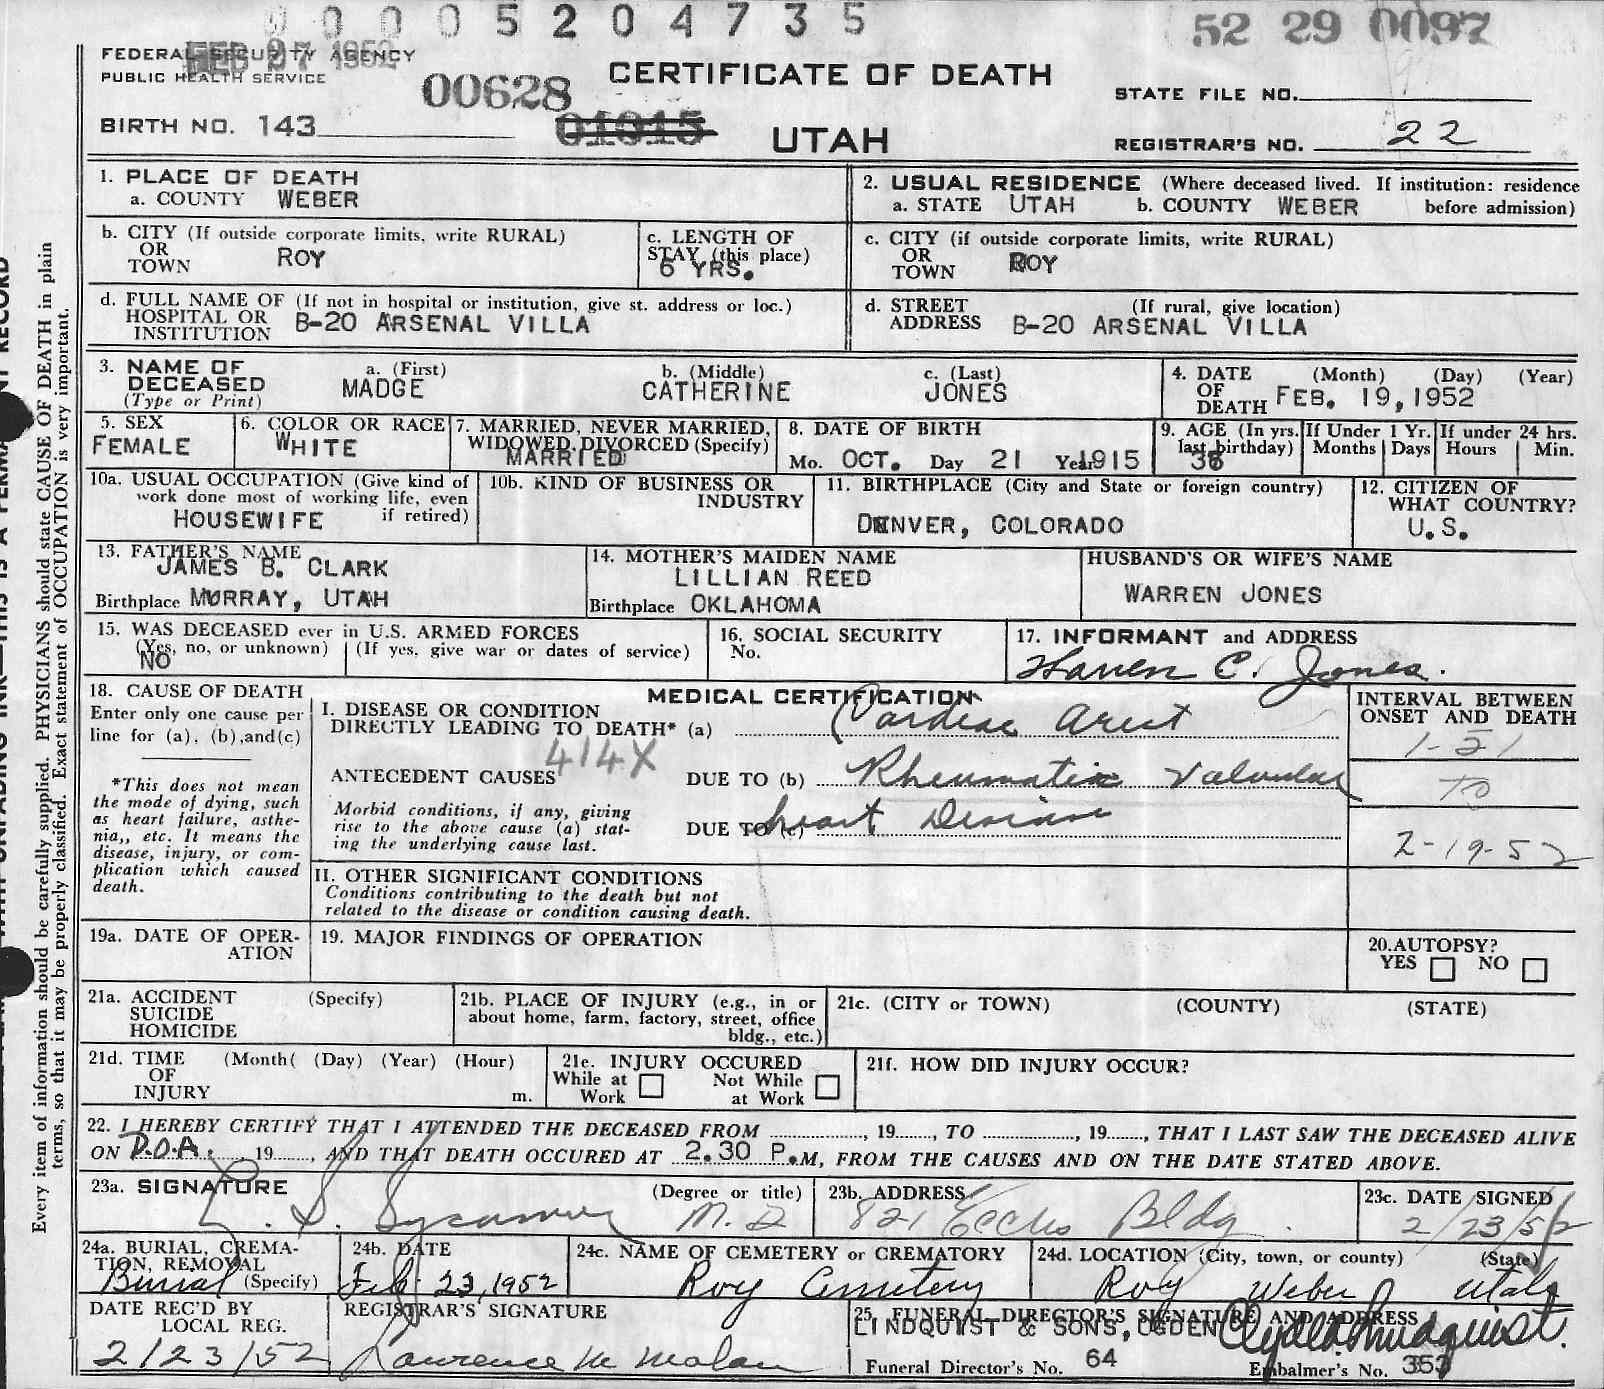 00005204735
52 29 0097
FEDERAL SECURITY AGENCY
FEB 27 1952
PUBLIC HEALTH SERVICE
CERTIFICATE OF DEATH
00628
STATE FILE NO.
BIRTH NO. 143
01015
UTAH
REGISTRAR'S NO. 22
1. PLACE OF DEATH
a. COUNTY WEBER
2. USUAL RESIDENCE (Where deceased lived. If institution: residence
a. STATE UTAH b. COUNTY WEBER before admission)
b. CITY (If outside corporate limits, write RURAL)
OR
TOWN ROY
c. LENGTH OF
STAY (this place)
6 YRS.
c. CITY (if outside corporate limits, write RURAL)
OR
TOWN ROY
d. FULL NAME OF (If not in hospital or institution, give st. address or loc.)
HOSPITAL OR
INSTITUTION B-20 ARSENAL VILLA
d. STREET (If rural, give location)
ADDRESS B-20 ARSENAL VILLA
3. NAME OF a. (First) b. (Middle) c. (Last)
DECEASED MADGE CATHERINE JONES
(Type or Print)
4. DATE (Month) (Day) (Year)
OF
DEATH FEB. 19, 1952
5. SEX
FEMALE
6. COLOR OR RACE
WHITE
7. MARRIED, NEVER MARRIED,
WIDOWED, DIVORCED (Specify)
MARRIED
8. DATE OF BIRTH
Mo. OCT. Day 21 Year 1915
9. AGE (In yrs.
last birthday)
36
If Under 1 Yr.
Months Days
If under 24 hrs.
Hours Min.
10a. USUAL OCCUPATION (Give kind of
work done most of working life, even
HOUSEWIFE if retired)
10b. KIND OF BUSINESS OR
INDUSTRY
11. BIRTHPLACE (City and State or foreign country)
DENVER, COLORADO
12. CITIZEN OF
WHAT COUNTRY?
U.S.
13. FATHER'S NAME
JAMES B. CLARK
Birthplace MURRAY, UTAH
14. MOTHER'S MAIDEN NAME
LILLIAN REED
Birthplace OKLAHOMA
HUSBAND'S OR WIFE'S NAME
WARREN JONES
15. WAS DECEASED ever in U.S. ARMED FORCES
(Yes, no, or unknown) (If yes, give war or dates of service)
NO
16. SOCIAL SECURITY
No.
17. INFORMANT and ADDRESS
Warren C. Jones.
18. CAUSE OF DEATH
Enter only one cause per
line for (a), (b), and (c)
*This does not mean
the mode of dying, such
as heart failure, asthe-
nia,, etc. It means the
disease, injury, or com-
plication which caused
death.
MEDICAL CERTIFICATION
I. DISEASE OR CONDITION
DIRECTLY LEADING TO DEATH* (a) Cardiac Arest
414X
ANTECEDENT CAUSES DUE TO (b) Rheumatic Valvular
Morbid conditions, if any, giving
rise to the above cause (a) stat-
ing the underlying cause last.
DUE TO (c) heart Disease
INTERVAL BETWEEN
ONSET AND DEATH
1-51
TO
2-19-52
II. OTHER SIGNIFICANT CONDITIONS
Conditions contributing to the death but not
related to the disease or condition causing death.
19a. DATE OF OPER-
ATION
19. MAJOR FINDINGS OF OPERATION
20. AUTOPSY?
YES NO
21a. ACCIDENT (Specify)
SUICIDE
HOMICIDE
21b. PLACE OF INJURY (e.g., in or
about home, farm, factory, street, office
bldg., etc.)
21c. (CITY or TOWN) (COUNTY) (STATE)
21d. TIME (Month( (Day) (Year) (Hour)
OF
INJURY m.
21e. INJURY OCCURED
While at Work Not While at Work
21f. HOW DID INJURY OCCUR?
22. I HEREBY CERTIFY THAT I ATTENDED THE DECEASED FROM ..............., 19......., TO ..............., 19......., THAT I LAST SAW THE DECEASED ALIVE
ON D.O.A. 19......., AND THAT DEATH OCCURED AT 2.30 P.M, FROM THE CAUSES AND ON THE DATE STATED ABOVE.
23a. SIGNATURE (Degree or title)
M.D
23b. ADDRESS
821 Eccles Bldg.
23c. DATE SIGNED
2/23/52
24a. BURIAL, CREMA-
TION, REMOVAL
Burial (Specify)
24b. DATE
Feb. 23, 1952
24c. NAME OF CEMETERY or CREMATORY
Roy Cemetery
24d. LOCATION (City, town, or county) (State)
Roy Weber Utah
DATE REC'D BY
LOCAL REG.
2/23/52
REGISTRAR'S SIGNATURE
Lawrence M Malan
25. FUNERAL DIRECTOR'S SIGNATURE AND ADDRESS
LINDQUYST & SONS, OGDEN Clyde Lindquist.
Funeral Director's No. 64
Embalmer's No. 353
Every item of information should be carefully supplied. PHYSICIANS should state CAUSE OF DEATH in plain
terms, so that it may be properly classified. Exact statement of OCCUPATION is very important.